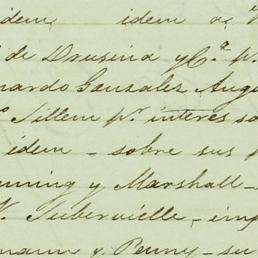 idem, idem
de Drusina y Cª p.
nardo Gonzalez Angu
Sillem pr. interes so
idem - sobre sus p
nning y Marshall -
Tubervielle - imp
mann y Penny - su